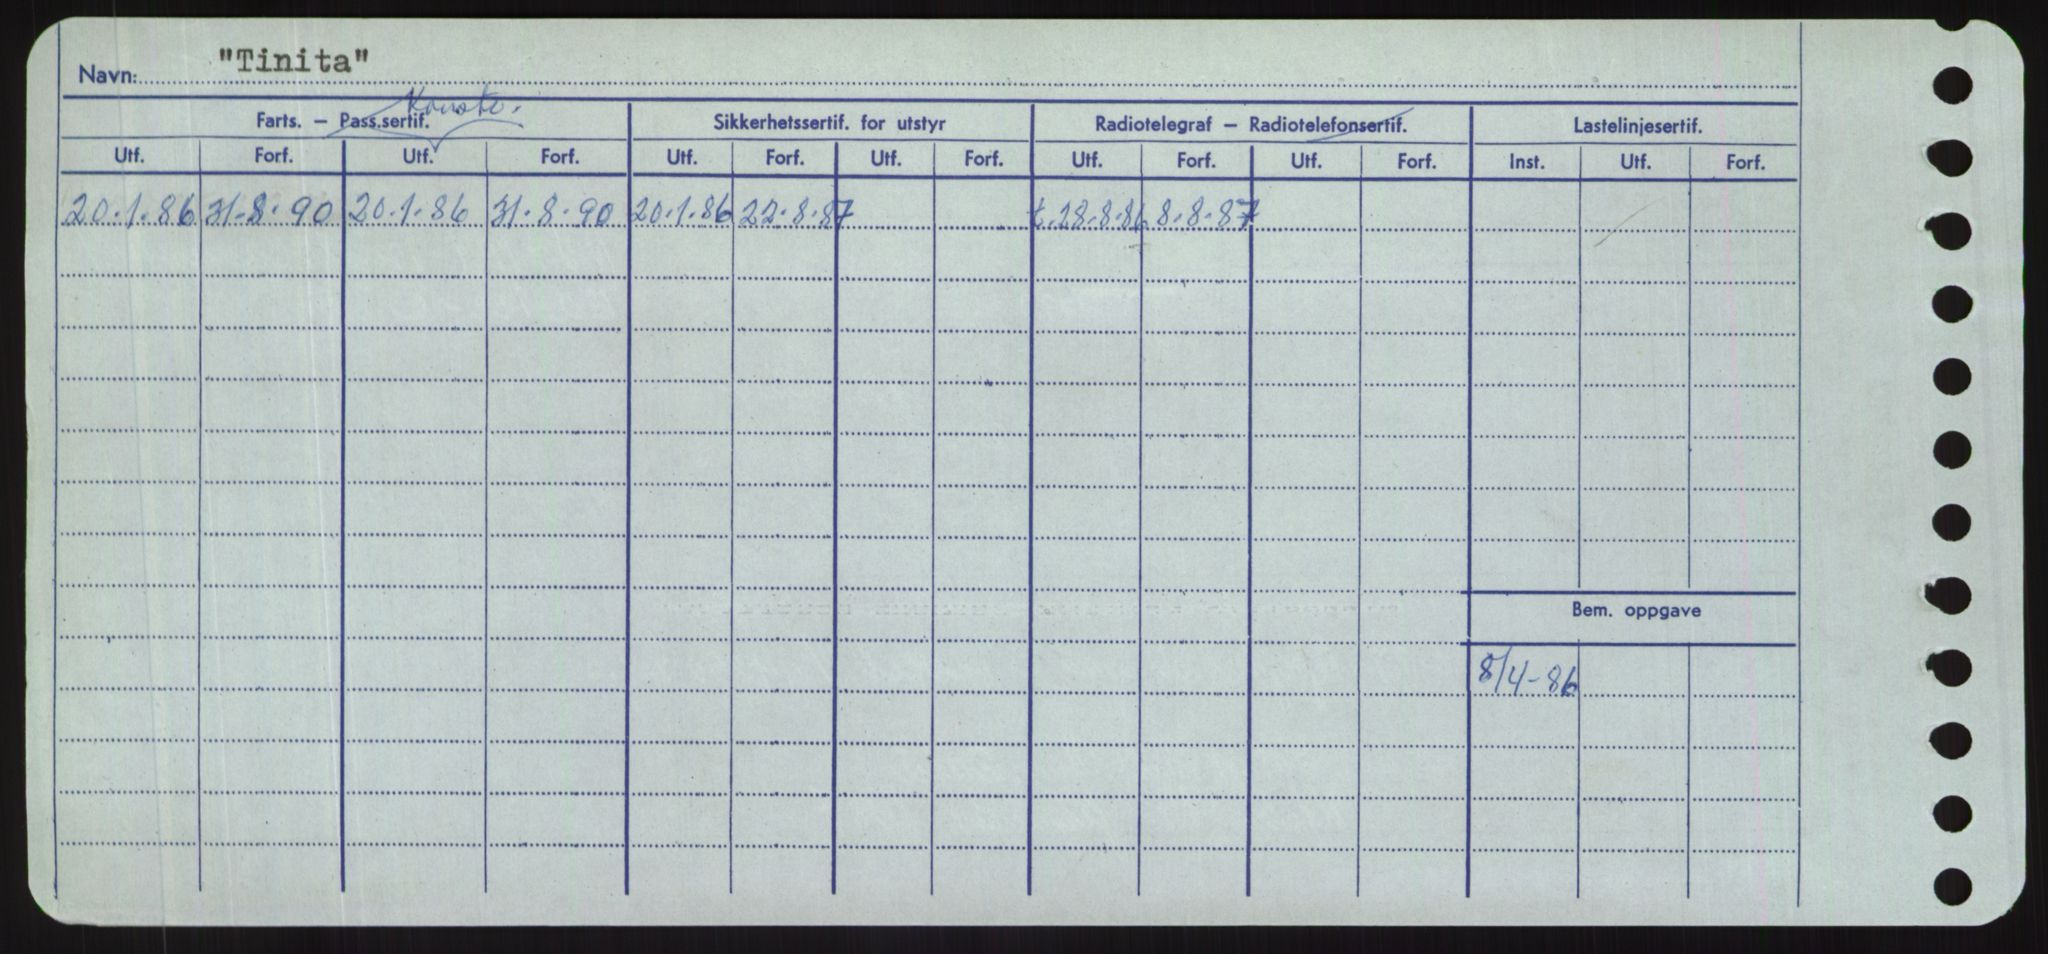 Navn: "Tinita"
Konstr.
Farts. – Pass.sertif. Sikkerhetssertif. for utstyr Radiotelegraf – Radiotelefonsertif. Lastelinjesertif.
Utf. Forf. Utf. Forf. Utf. Forf. Utf. Forf. Utf. Forf. Utf. Forf. Inst. Utf. Forf.
20.1.86 31.8.90 20.1.86 31.8.90 20.1.86 22.8.87 t.28.8.86 8.8.87
Bem. oppgave
8/4-86